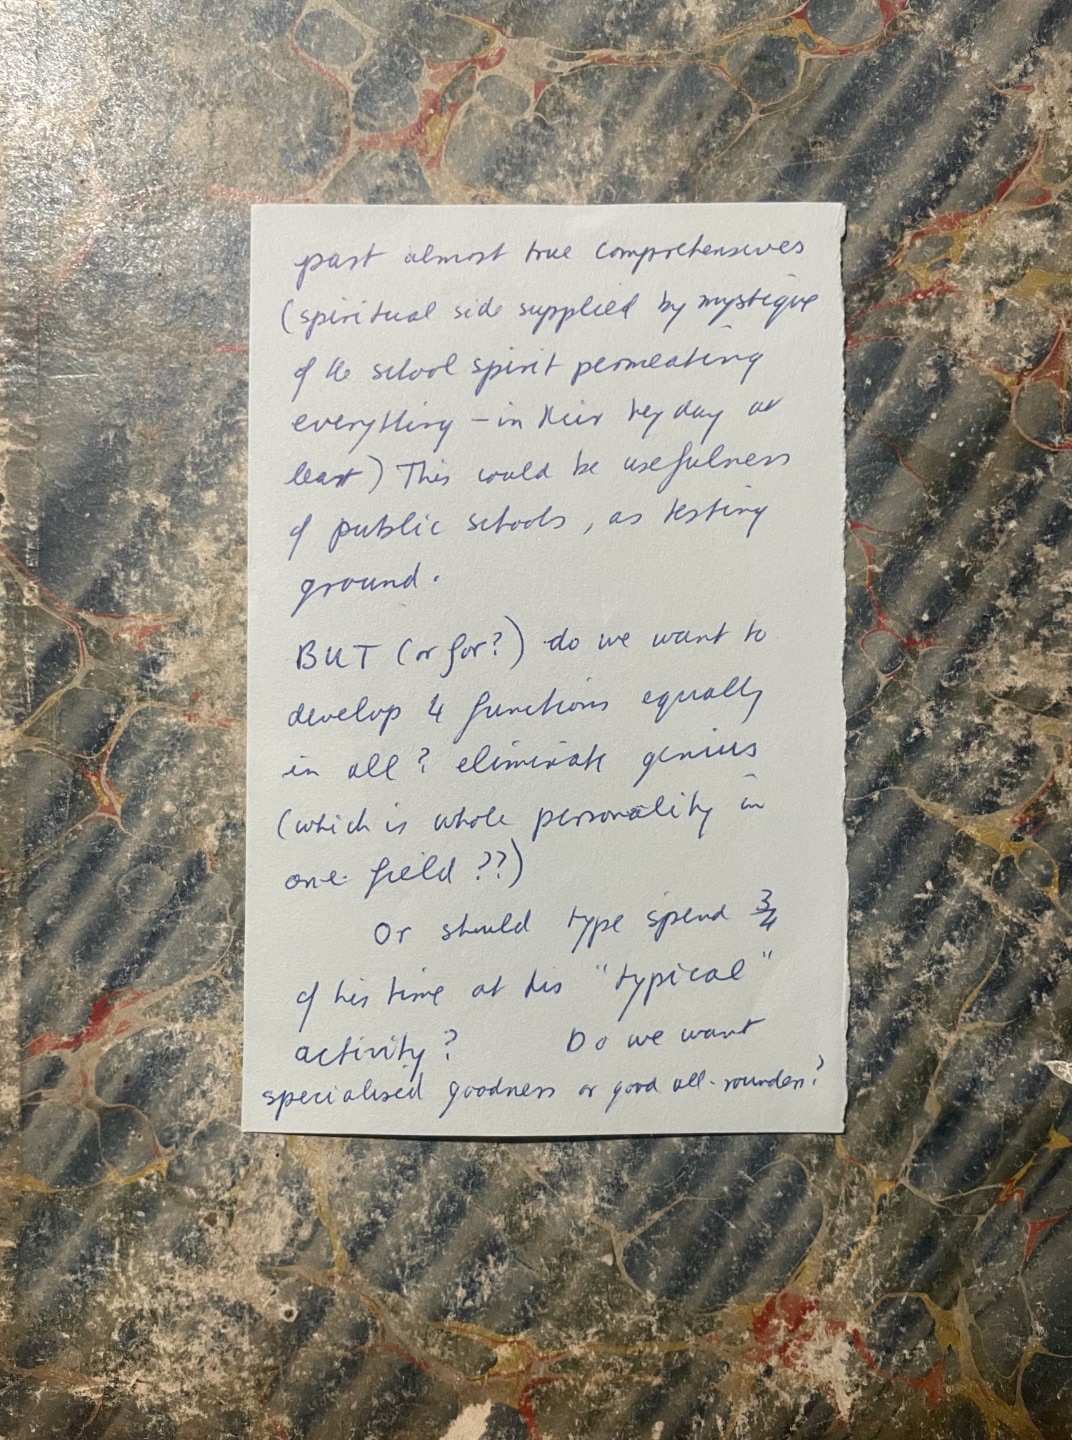 past almost true comprehensives
(spiritual side supplied by mystique
of the school spirit permeating
everything – in their heyday at
least) This would be usefulness
of public schools, as testing
ground.
BUT (or for?) do we want to
develop 4 functions equally
in all? eliminate genius
(which is whole personality in
one field ??)
Or should type spend 3/4
of his time at his "typical"
activity? Do we want
specialised goodness or good all-rounders?